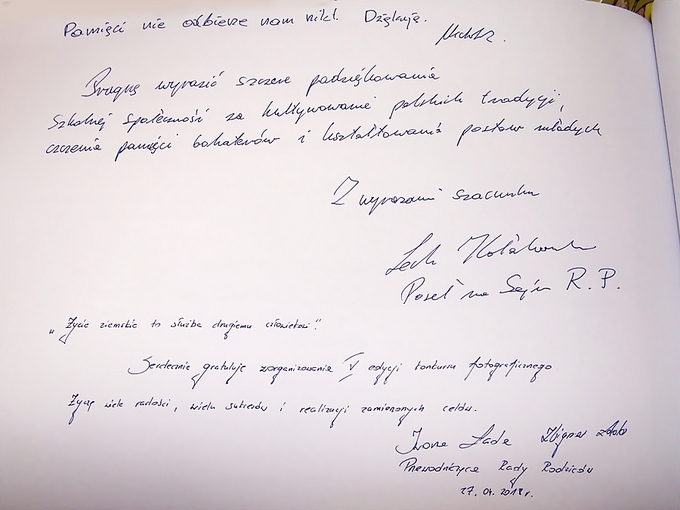 Pamięci nie odbierze nam nikt. Dziękuję.
Pragnę wyrazić szczere podziękowania
Szkolnej Społeczność za kultywowanie polskich tradycji,
czczenia pamięci bohaterów i kształtowania postaw młodych
Z wyrazami szacunku
Lech Kołakowski
Poseł na Sejm R.P.
„Życie ziemskie to służba drugiemu człowiekowi".
Serdecznie gratuluję zorganizowania V edycji konkursu fotograficznego
Życzę wiele radości, wielu sukcesów i realizacji zamierzonych celów.
Iwona Sade Zbigniew
Przewodniczące Rady Rodziców
27.04.2018r.